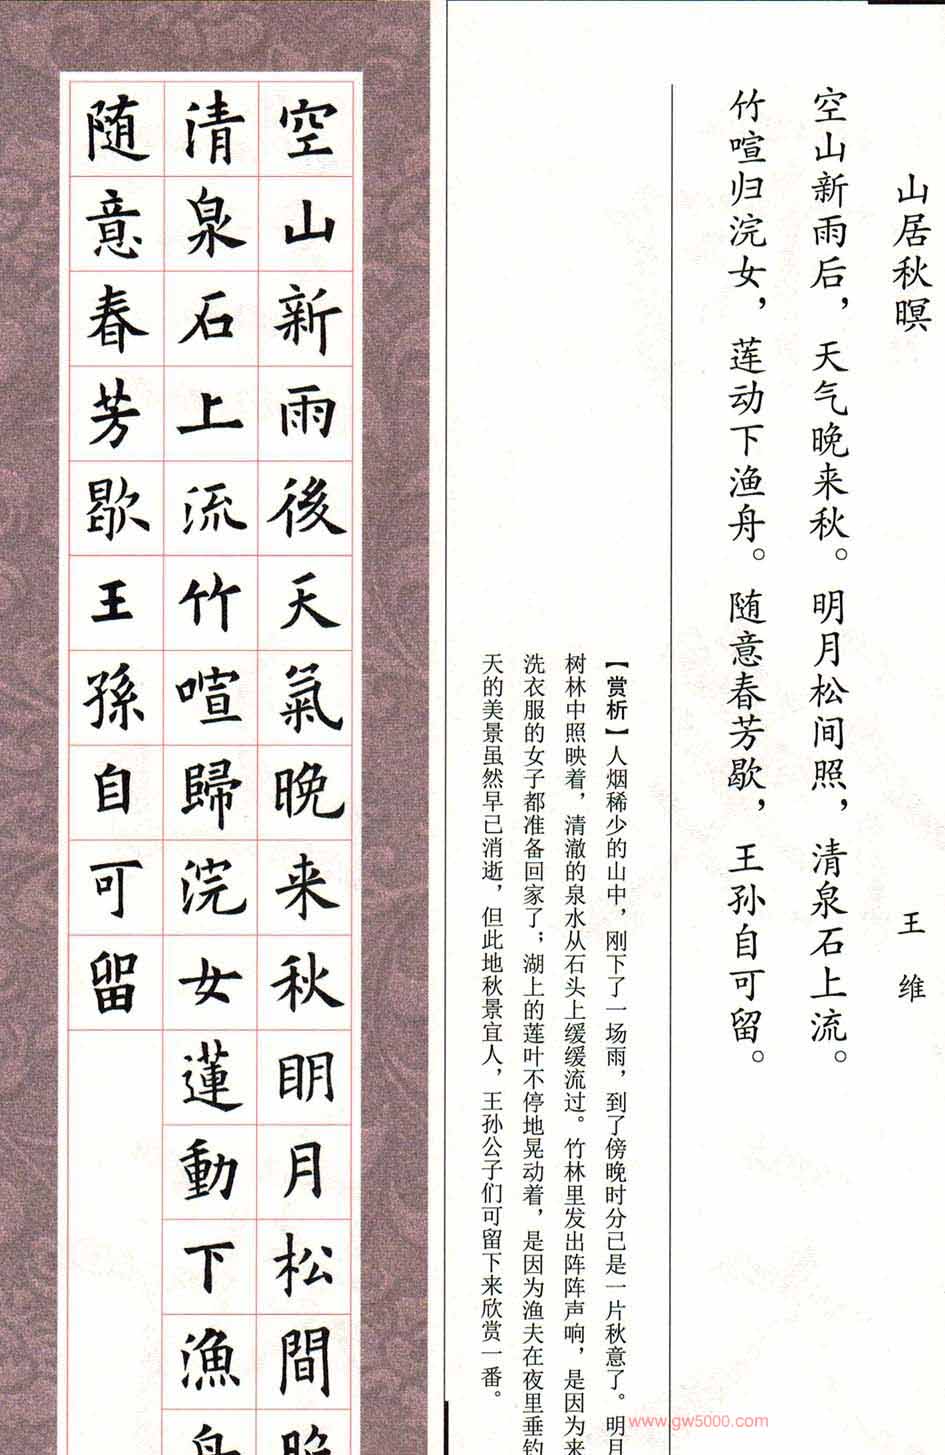 山居秋暝 王维
空山新雨后，天气晚来秋。明月松间照，清泉石上流。
竹喧归浣女，莲动下渔舟。随意春芳歇，王孙自可留。
【赏析】人烟稀少的山中，刚下了一场雨，到了傍晚时分已是一片秋意了。明月
树林中照映着，清澈的泉水从石头上缓缓流过。竹林里发出阵阵声响，是因为来
洗衣服的女子都准备回家了；湖上的莲叶不停地晃动着，是因为渔夫在夜里垂钓
天的美景虽然早已消逝，但此地秋景宜人，王孙公子们可留下来欣赏一番。
空山新雨後天氣晚来秋明月松間
清泉石上流竹喧歸浣女蓮動下漁舟
随意春芳歇王孫自可留
www.gw5000.com